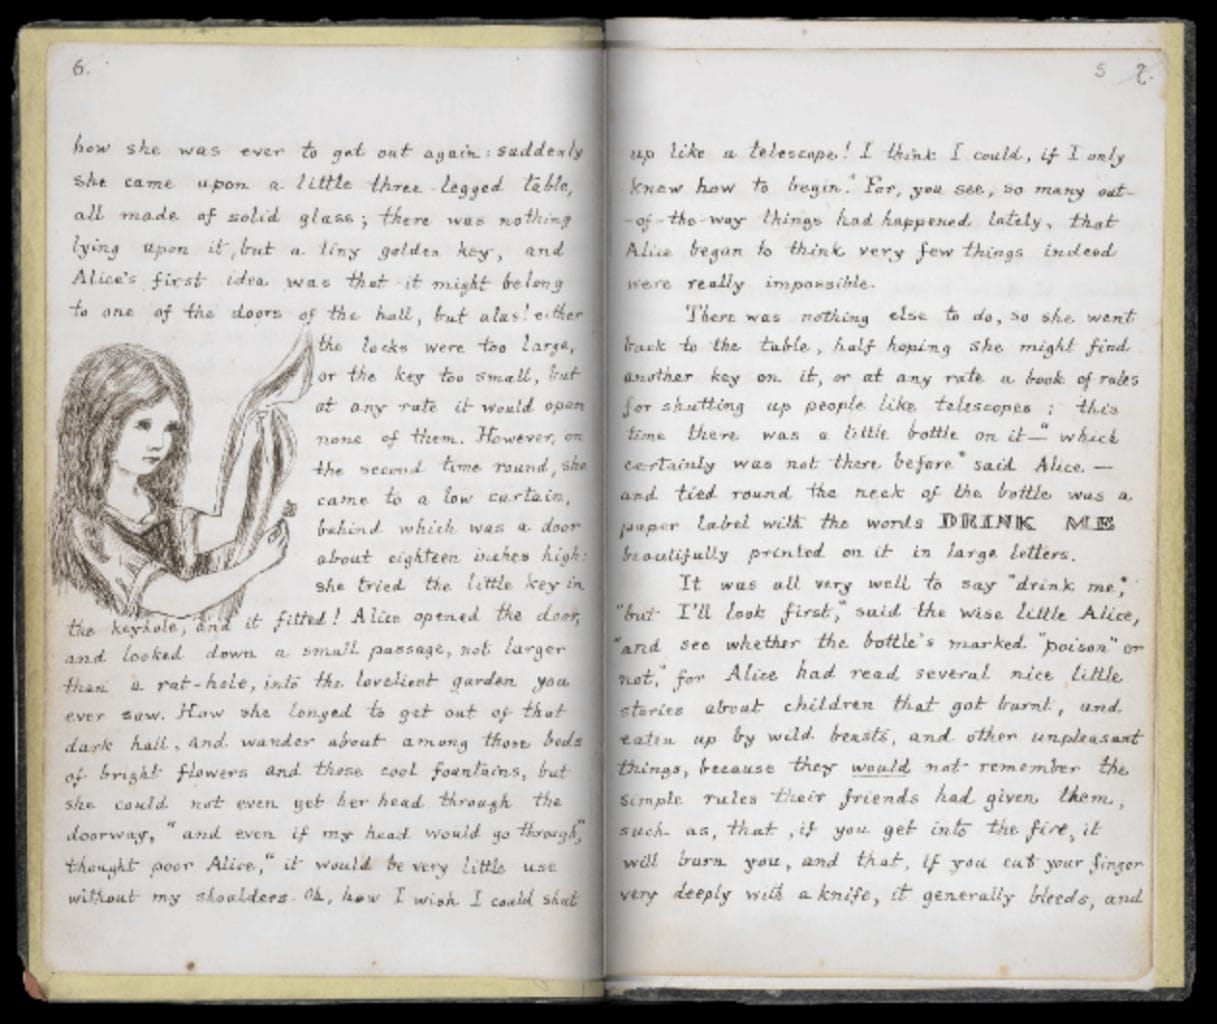 6.
how she was ever to get out again: suddenly
she came upon a little three-legged table,
all made of solid glass; there was nothing
lying upon it, but a tiny golden key, and
Alice's first idea was that it might belong
to one of the doors of the hall, but alas! either
the locks were too large,
or the key too small, but
at any rate it would open
none of them. However, on
the second time round, she
came to a low curtain,
behind which was a door
about eighteen inches high:
she tried the little key in
the keyhole, and it fitted! Alice opened the door,
and looked down a small passage, not larger
than a rat-hole, into the loveliest garden you
ever saw. How she longed to get out of that
dark hall, and wander about among those beds
of bright flowers and those cool fountains, but
she could not even get her head through the
doorway, "and even if my head would go through,"
thought poor Alice, "it would be very little use
without my shoulders. Oh, how I wish I could shut
5 7.
up like a telescope! I think I could, if I only
knew how to begin." For, you see, so many out-
-of-the-way things had happened lately, that
Alice began to think very few things indeed
were really impossible.
There was nothing else to do, so she went
back to the table, half hoping she might find
another key on it, or at any rate a book of rules
for shutting up people like telescopes: this
time there was a little bottle on it—"which
certainly was not there before" said Alice—
and tied round the neck of the bottle was a
paper label with the words DRINK ME
beautifully printed on it in large letters.
It was all very well to say "drink me,"
"but I'll look first," said the wise little Alice,
"and see whether the bottle's marked "poison" or
not," for Alice had read several nice little
stories about children that got burnt, and
eaten up by wild beasts, and other unpleasant
things, because they would not remember the
simple rules their friends had given them,
such as, that, if you get into the fire, it
will burn you, and that, if you cut your finger
very deeply with a knife, it generally bleeds, and